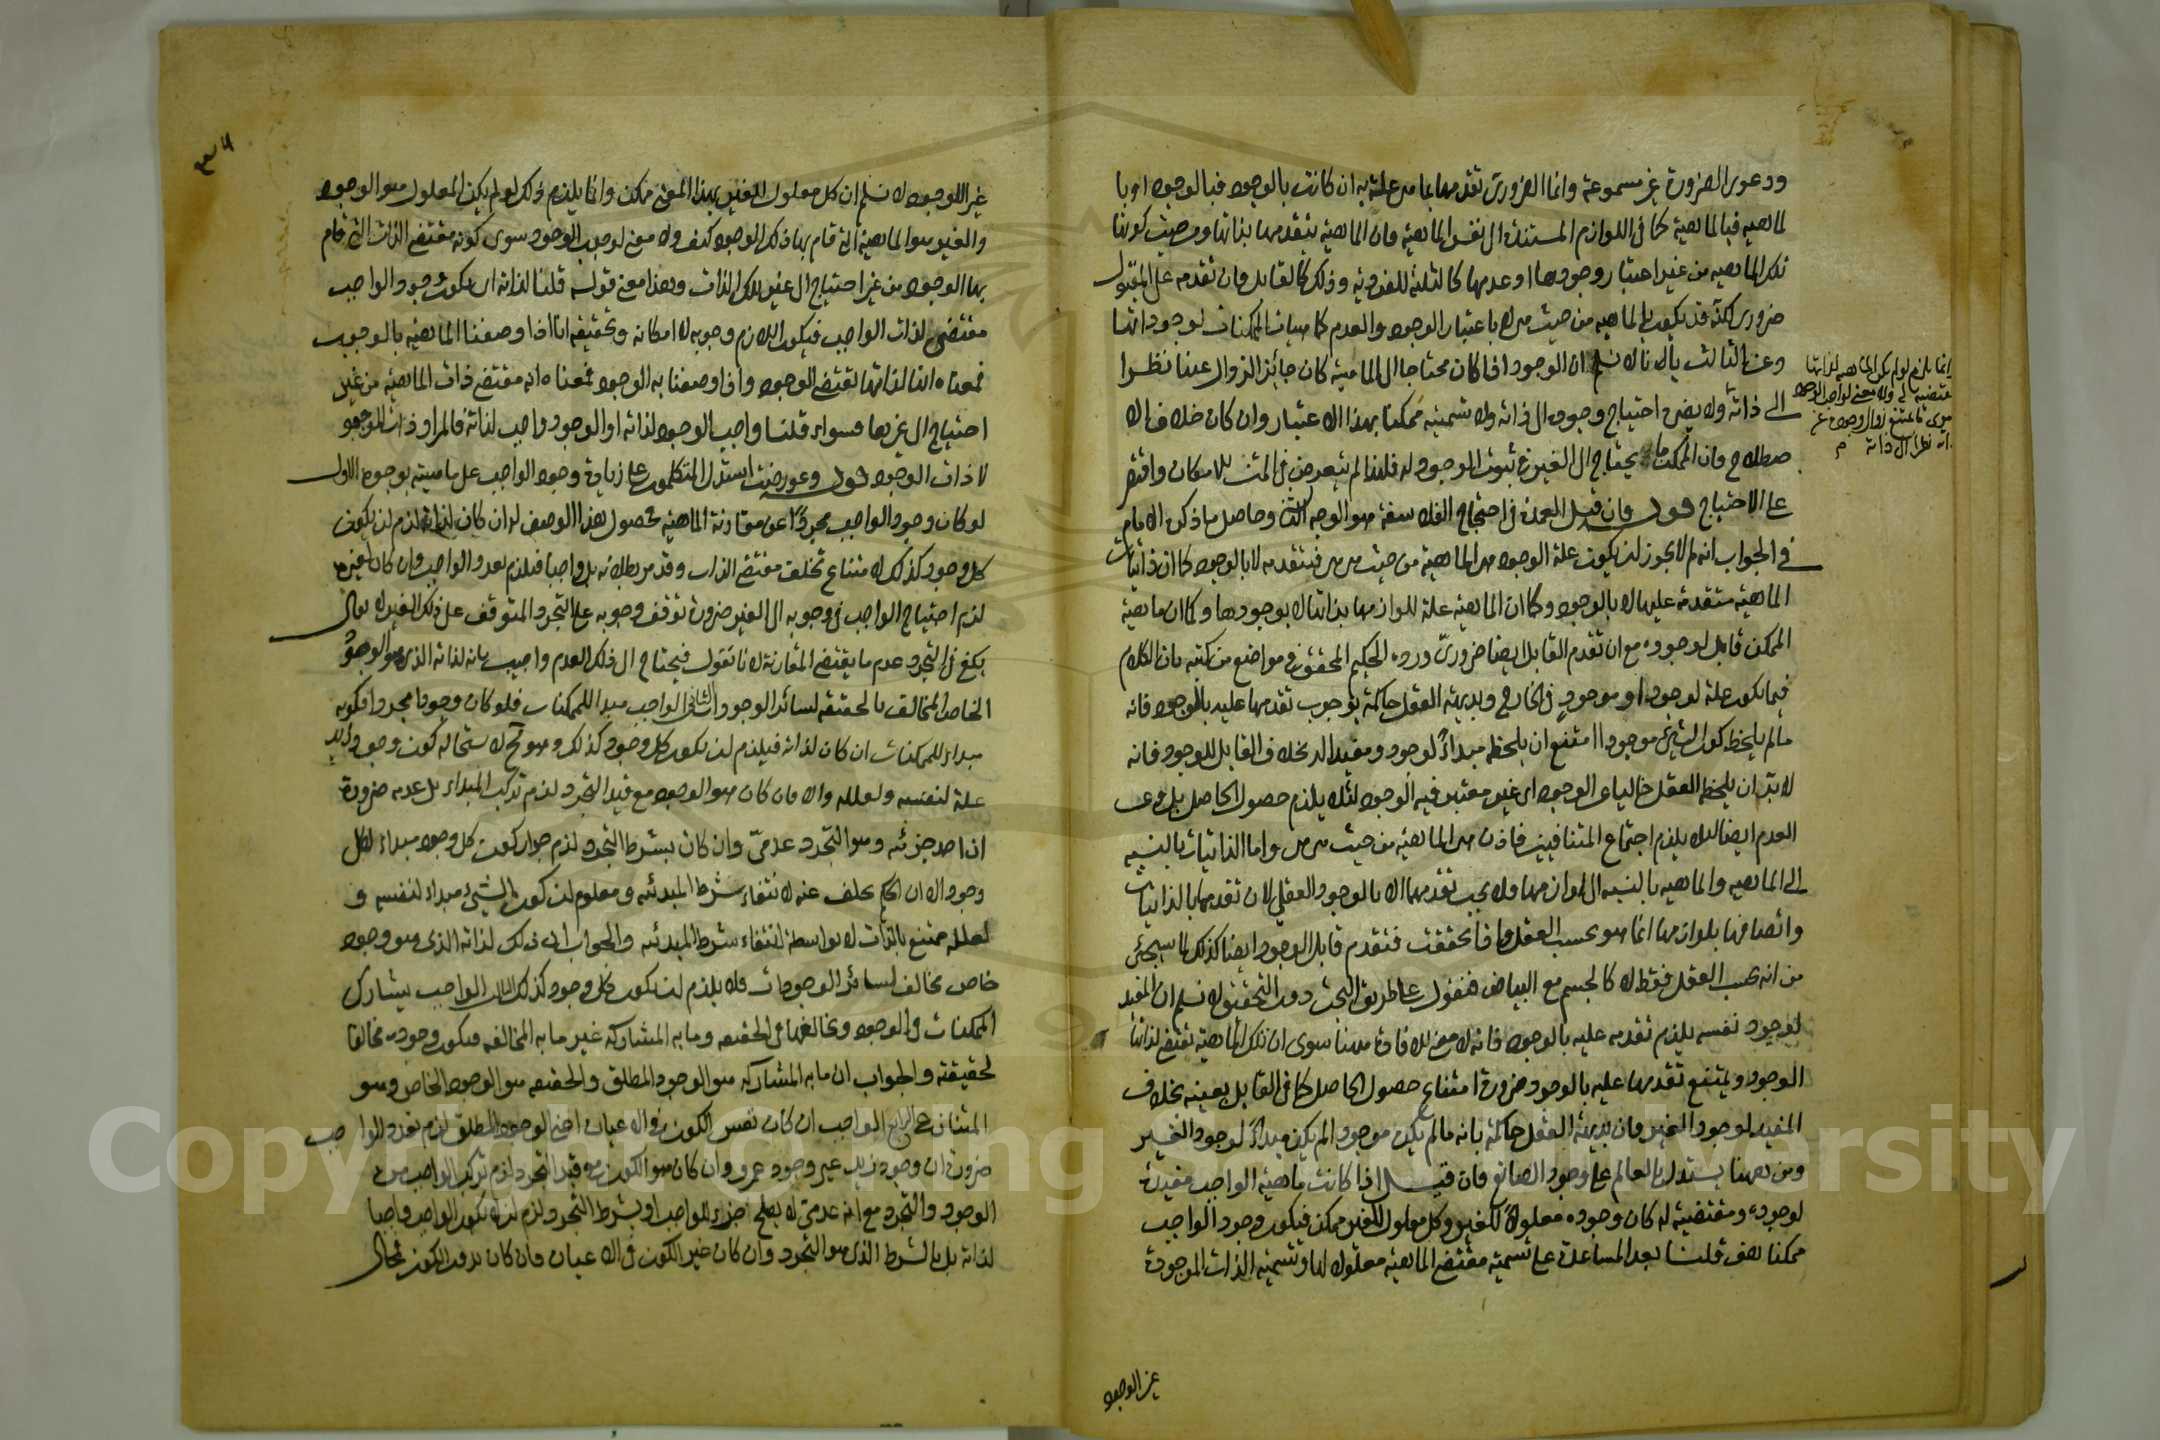 ودعوى الضرورة غير مسموعة وانما الضروري تقدمها بما هي علة به ان كانت بالوجود فبالوجود او با
لماهيه فبالماهية كما في اللوازم المستندة الى نفس الماهية فان الماهية يتقدمها بذاتها ومن حيث كونها
تلك الماهيه من غير اعتبار وجودها او عدمها كالثلثة للفردية وذلك كالقابل فان تقدمه على المقبول
ضروري لكنه قد يكون بالماهيه من حيث هي لا باعتبار الوجود والعدم كماهيات الممكنات لوجوداتها
وعن الثالث بانا لا نسلم ان الوجود اذا كان محتاجا الى الماهية كان جائز الزوال عنها نظرا
انما يلزم لو لم يكن الماهيه لذاتها
مقتضية له ولا معنى لواجب الوجود
سوى ما يمتنع زوال وجوده عن
ذاته نظرا الى ذاته م
الى ذاته ولا يضر احتياج وجوده الى ذاته ولا تسميته ممكنا بهذا الاعتبار وان كان خلاف الا
صطلاح فان الممكن ما يحتاج الى الغير في ثبوت الوجود له فلهذا لم يتعرض في المتن للامكان واقتصر
على الاحتياج قوله فان قيل العمدة في احتجاج الفلاسفة هو الوجه الثاني وحاصل ما ذكره الامام
في الجواب انه لم لا يجوز ان يكون علة الوجود هي الماهية من حيث هي هي فيتقدمه لا بالوجود كما ان ذاتيات
الماهية متقدمة عليها لا بالوجود وكما ان الماهية علة للوازمها بذاتها لا بوجودها وكما ان ماهية
الممكن قابل لوجوده مع ان تقدم القابل ايضا ضروري ورده الحكيم المحقق في مواضع من كتبه بان الكلام
فيما يكون علة لوجود او موجود في الخارج وبديهة العقل حاكمة بوجوب تقدمها عليه بالوجود فانه
مالم يلحظ كون الشيء موجودا امتنع ان يلحظه مبدأ لوجود ومفيدا له بخلاف القابل للوجود فانه
لابد ان يلحظه العقل خاليا عن الوجود اي غير معتبر فيه الوجود لئلا يلزم حصول الحاصل بل وعن
العدم ايضا لئلا يلزم اجتماع المتنافيين فاذن هي الماهية من حيث هي هي واما الذاتيات بالنسبه
الى الماهيه والماهيه بالنسبه الى لوازمها فلا يجب تقدمها الا بالوجود العقلي لان تقدمها بالذاتيات
واتصافها بلوازمها انما هو بحسب العقل واذا تحققت فتقدم قابل الوجود ايضا كذلك لما سيجئ
من انه بحسب العقل فقط لا كالجسم مع البياض فنقول على طريق البحث دون التحقيق لا نسلم ان المفيد
لوجود نفسه يلزم تقدمه عليه بالوجود فانه لا معنى للافادة ههنا سوى ان تلك الماهية تقتضي لذاتها
الوجود ويمتنع تقدمها عليه بالوجود ضرورة امتناع حصول الحاصل كما في القابل بعينه بخلاف
المفيد لوجود الغير فان بديهة العقل حاكمة بانه مالم يكن موجودا لم يكن مبدأ لوجود الغير
ومن ههنا يستدل بالعالم على وجود الصانع فان قيل اذا كانت ماهية الواجب مفيدة
لوجوده ومقتضية له كان وجوده معلولا للغير وكل معلول للغير ممكن فيكون وجود الواجب
ممكنا هف قلنا بعد المساعدة على تسمية مقتضى الماهية معلولا لها وتسمية الذات الموجودة
غير الوجود
غير الوجود لا نسلم ان كل معلول للغير بهذا المعنى ممكن وانما يلزم ذلك لو لم يكن المعلول هو الوجود
والغير هو الماهية التي قام بها ذلك الوجود كيف ولا معنى لوجوب الوجود سوى كونه مقتضى الذات التي قام
بها الوجود من غير احتياج الى غير تلك الذات وهذا معنى قوله قلنا لذاته اي يكون وجود الواجب
مقتضى لذات الواجب فيكون اللازم وجوبه لا امكانه وتحقيقه انا اذا وصفنا الماهية بالوجوب
فمعناه انها لذاتها تقتضي الوجود واذا وصفنا به الوجود فمعناه انه مقتضى ذات الماهية من غير
احتياج الى غيرها فسواء قلنا واجب الوجود لذاته او الوجود واجب لذاته فالمراد ذات الموجود
لا ذات الوجود قوله وعورضت استدل المتكلمون على زيادة وجود الواجب على ماهيته بوجوه الاول
لو كان وجود الواجب مجردا عن مقارنة الماهية فحصول هذا الوصف له ان كان لذاته لزم ان يكون
كل وجود كذلك لامتناع تخلف مقتضى الذات وقد مر بطلانه بل واجبا فيلزم تعدد الواجب وان كان لغيره
لزم احتياج الواجب في وجوبه الى الغير ضرورة توقف وجوبه على التجرد المتوقف على ذلك الغير لا يقال
يكفي في التجرد عدم ما يقتضي المقارنة لانا نقول فيحتاج الى ذلك العدم واجيب بانه لذاته الذي هو الوجود
الخاص المخالف بالحقيقه لسائر الوجودات الثاني الواجب مبدا للممكنات فلو كان وجودا مجردا فكونه
مبداء للممكنات ان كان لذاته فيلزم ان يكون كل وجود كذلك وهو مح لاستحاله كون وجود زيد
علة لنفسه ولعلله والا فان كان هو الوجود مع قيد التجرد لزم تركب المبداء بل عدمه ضرورة
ان احد جزئيه وهو التجرد عدمي وان كان بشرط التجرد لزم جواز كون كل وجود مبداء لكل
وجود الا ان الحكم تخلف عنه لانتفاء شرط المبدئيه ومعلوم ان كون الشيء مبداء لنفسه و
لعلله ممتنع بالذات لا بواسطة انتفاء شرط المبدئيه والجواب ان ذلك لذاته الذي هو وجود
خاص مخالف لسائر الوجودات فلا يلزم ان يكون كل وجود كذلك الثالث الواجب يشارك
الممكنات في الوجود ويخالفها في الحقيقه وما به المشاركه غير ما به المخالفه فيكون وجوده مخالفا
لحقيقته والجواب ان ما به المشاركه هو الوجود المطلق والحقيقه هو الوجود الخاص وهو
المتنازع الرابع الواجب ان كان نفس الكون في الاعيان اعني الوجود المطلق لزم تعدد الواجب
ضرورة ان وجود زيد غير وجود عمرو وان كان هو الكون مع قيد التجرد لزم تركب الواجب من
الوجود والتجرد مع انه عدمي لا يصلح جزء للواجب او بشرط التجرد لزم ان لا يكون الواجب واجبا
لذاته بل بالشرط الذي هو التجرد وان كان غير الكون في الاعيان فان كان بدون الكون فمحال